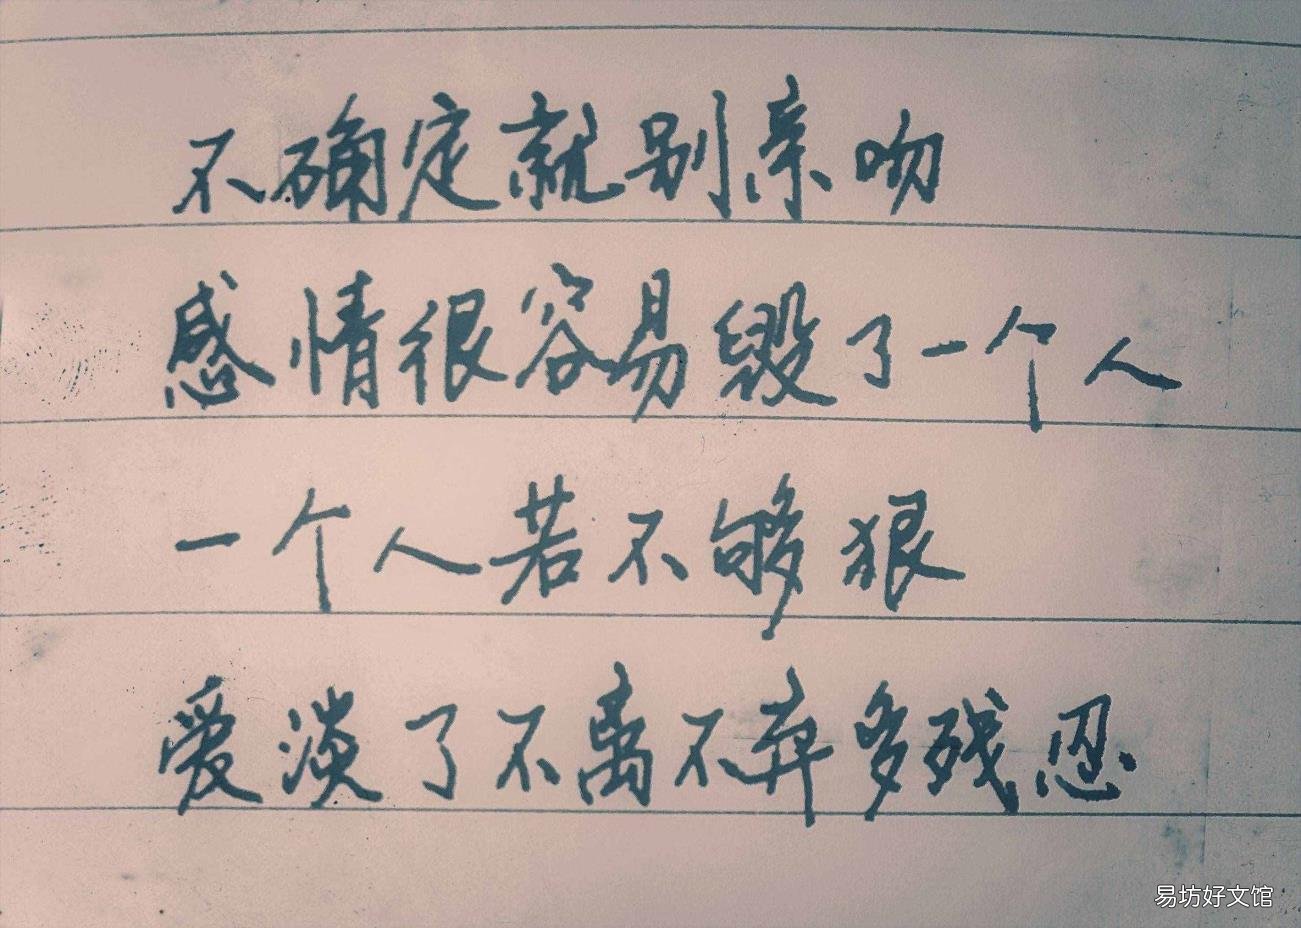 不确定就别亲吻
感情很容易毁了一个人
一个人若不够狠
爱淡了不离不弃多残忍
易坊好文馆